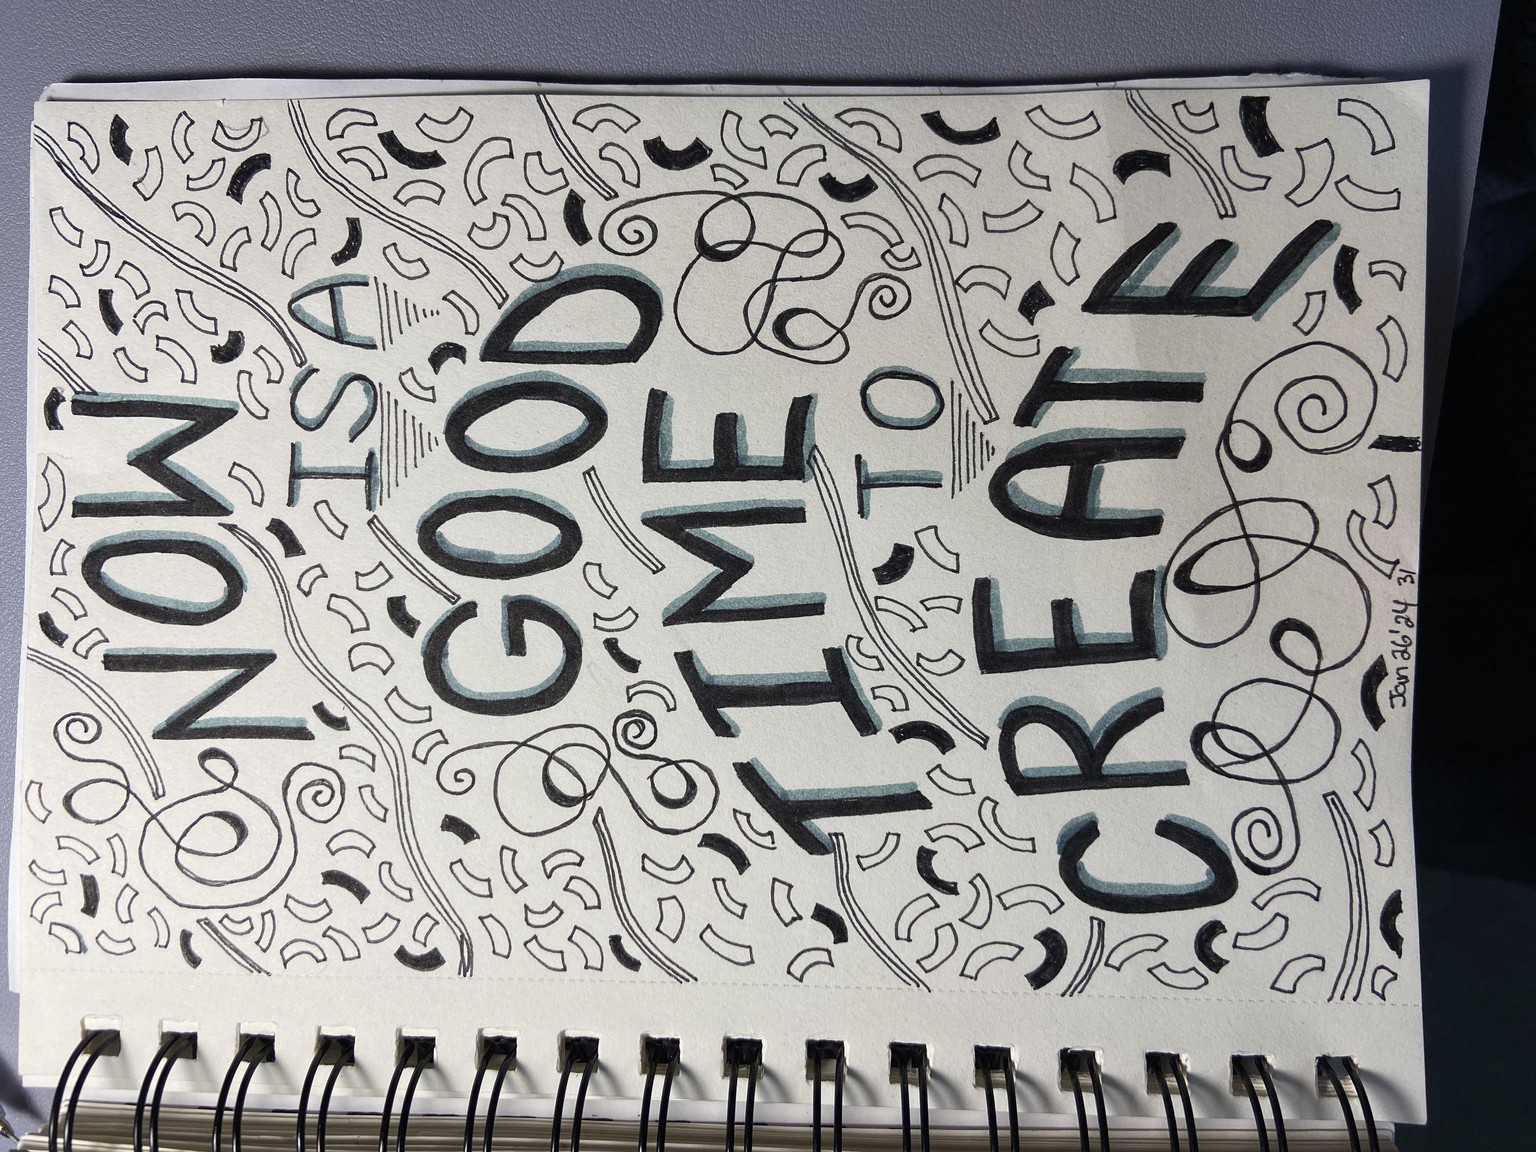 NOW
IS A
GOOD
TIME
TO
CREATE
Jan 26'24 31